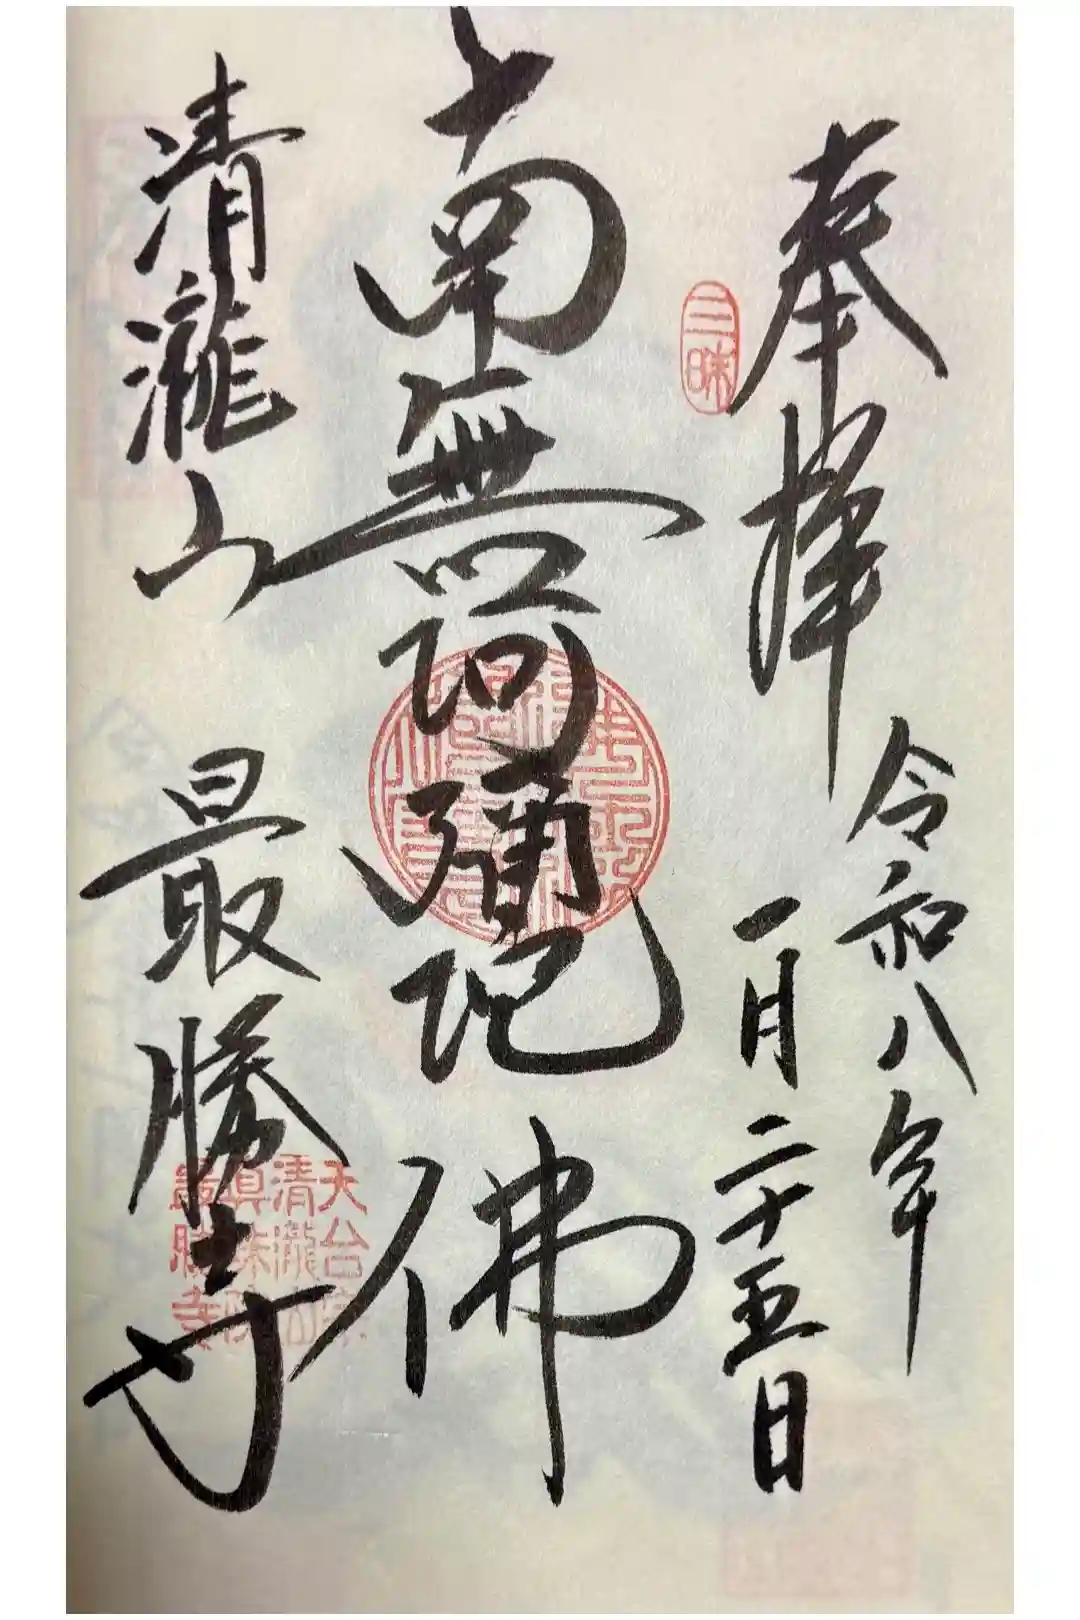 奉拝
三昧
令和八年
一月二十五日
南無阿彌陀佛
清瀧山
最勝寺
天台宗
清瀧山
最勝寺